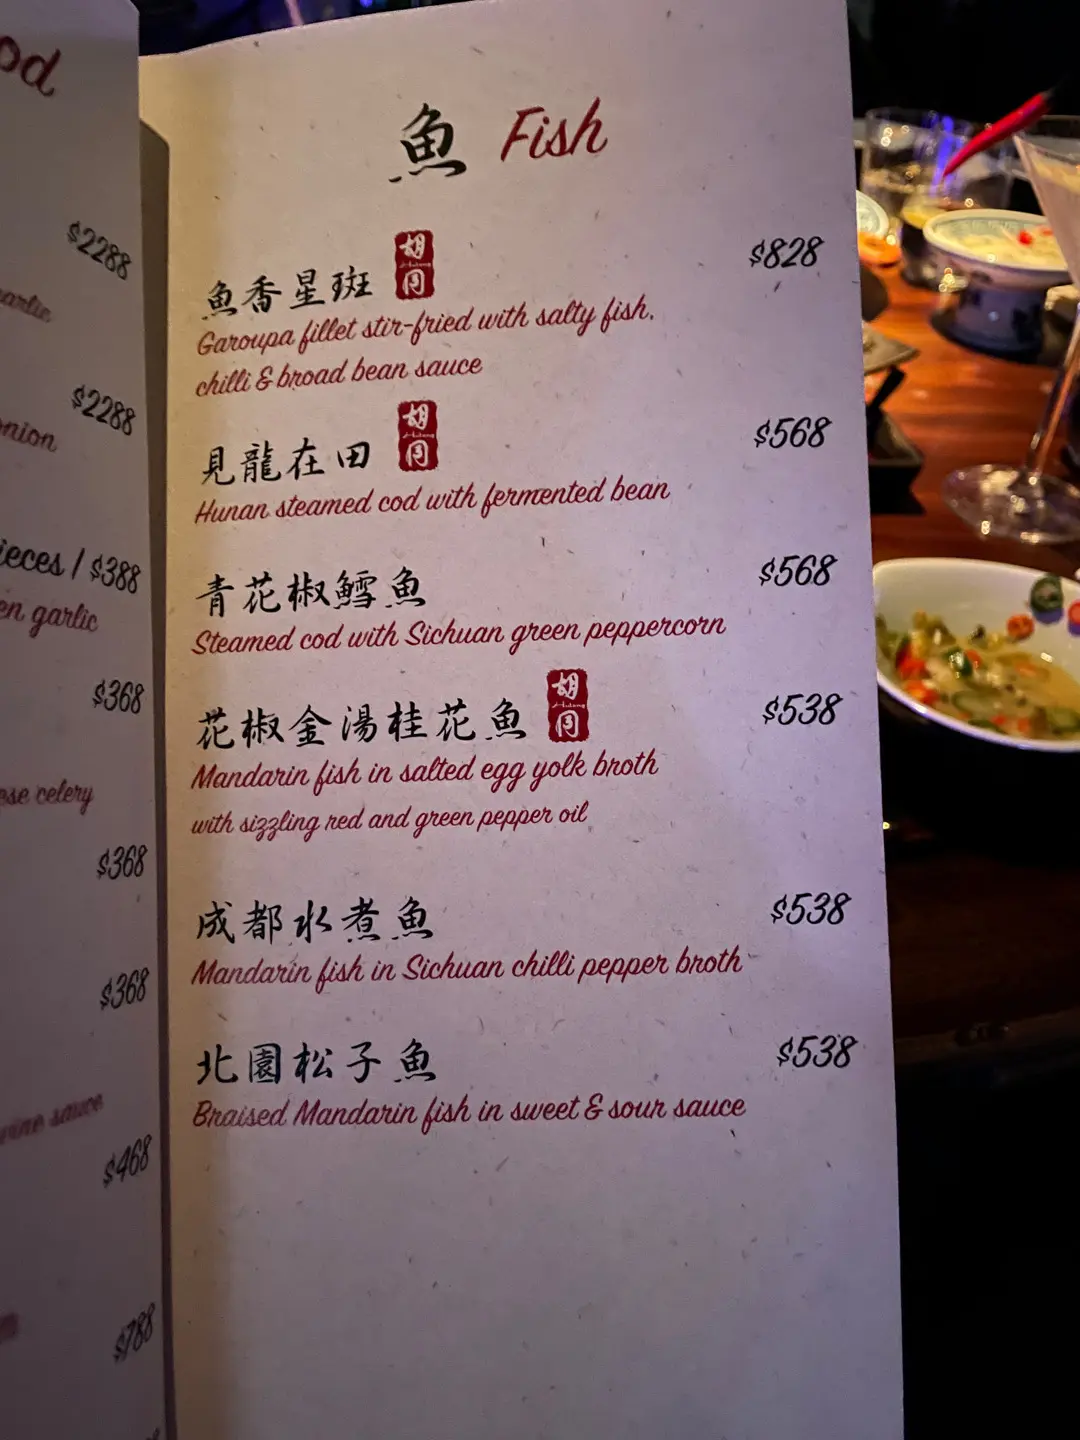 od
$2288
garlic
$2288
onion
ieces / $388
en garlic
$368
ese celery
$368
$368
wine sauce
$468
$788
魚 Fish
魚香星斑 胡同 $828
Garoupa fillet stir-fried with salty fish,
chilli & broad bean sauce
見龍在田 胡同 $568
Hunan steamed cod with fermented bean
青花椒鱈魚 $568
Steamed cod with Sichuan green peppercorn
花椒金湯桂花魚 胡同 $538
Mandarin fish in salted egg yolk broth
with sizzling red and green pepper oil
成都水煮魚 $538
Mandarin fish in Sichuan chilli pepper broth
北園松子魚 $538
Braised Mandarin fish in sweet & sour sauce